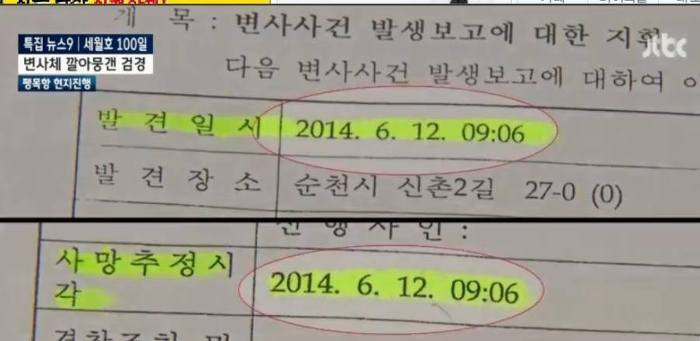 제 목 : 변사사건 발생보고에 대한 지휘
특집 뉴스9 | 세월호 100일
jtbc
변사체 깔아뭉갠 검경
다음 변사사건 발생보고에 대하여
팽목항 현지진행
발견일시 2014. 6. 12. 09:06
발견장소 순천시 신촌2길 27-0 (0)
사망추정시 2014. 6. 12. 09:06
각